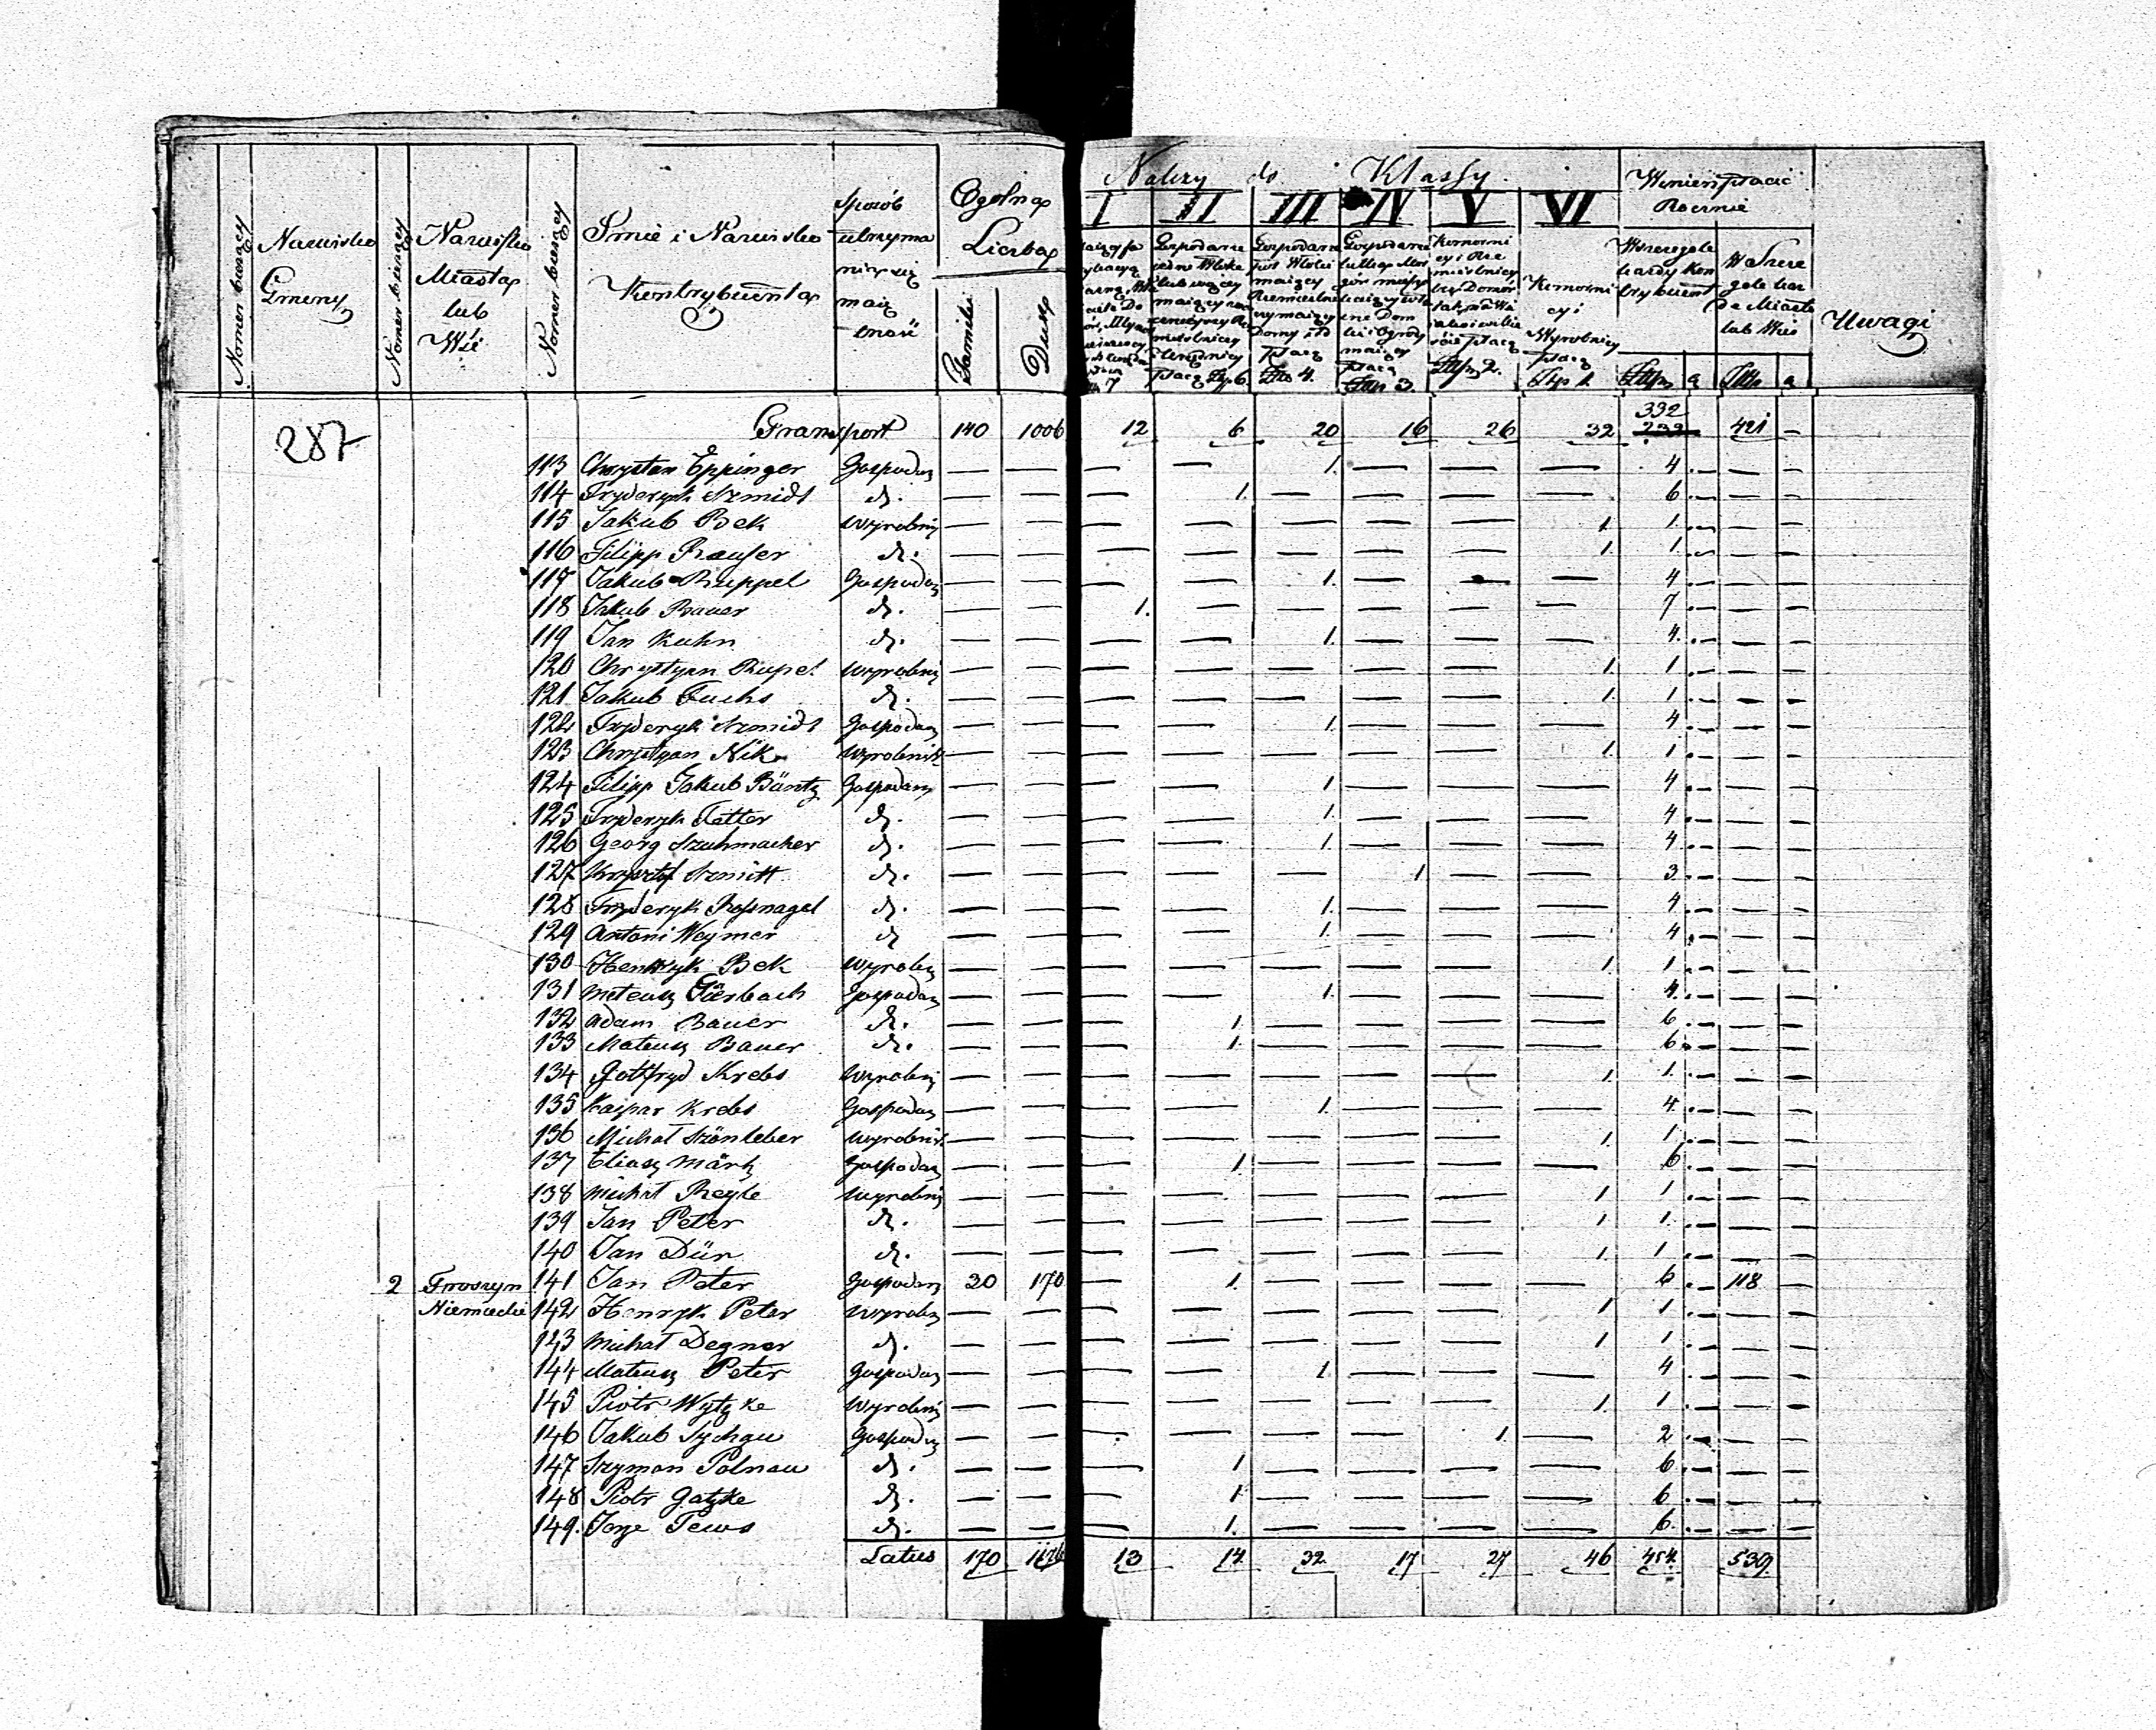 Numer bieżący
Nazwisko
Gmeny
Numer bieżący
Nazwisko
Miasta
lub
Wsi
Numer bieżący
Imie i Nazwisko
Kontrybuenta
Sposób
utrzyma
nia się
maią
tność
Ogolna
Liczba
Familii
Dusz
Należy do Klassy.
I II III IV V VI
Winien płacić
Rocznie
W szczegole
każdy Kon
trybuent
W Szcze
gole ka
de Miasto
lub Wieś
Komorni
cy i
Wyrobnicy
Płacą
Złp 1.
Uwagi
287
Transport 140 1006 12 6 20 16 26 32 332 421 —
113 Chrystian Eppinger Gospodarz — — — — 1. — — — 4 — — —
114 Fryderyk Szmidt dt. — — — 1. — — — — 6 — — —
115 Jakub Bek Wyrobnij — — — — — — — 1. 1 — — —
116 Filipp Rauser dt. — — — — — — — 1. 1 — — —
117 Jakub Ruppel Gospodarz — — — — 1. — — — 4 — — —
118 Jakub Bauer dt. — — 1. — — — — — 7 — — —
119 Jan Kuhn dt. — — — — 1. — — — 4. — — —
120 Chrystyan Rupel Wyrobnij — — — — — — — 1. 1 — — —
121 Jakub Fuchs dt. — — — — — — — 1. 1 — — —
122 Fryderyk Szmidt Gospodarz — — — — 1. — — — 4 — — —
123 Chrystyan Nik Wyrobnik — — — — — — — 1. 1 — — —
124 Filipp Jakub Bäntz Gospodarz — — — — 1 — — — 4 — — —
125 Fryderyk Fetter dt. — — — — 1. — — — 4 — — —
126 Georg Szuhmacher dt. — — — — 1. — — — 4 — — —
127 Krysztof Szmitt dt. — — — — — 1 — — 3 — — —
128 Fryderyk Rossnagel dt. — — — — 1. — — — 4 — — —
129 Antoni Weymer dt — — — — 1. — — — 4 — — —
130 Henryk Bek Wyrobn — — — — — — — 1. 1 — — —
131 Mateusz Fierbach Gospodarz — — — — 1. — — — 4. — — —
132 Adam Bauer dt. — — — 1. — — — — 6 — — —
133 Mateusz Bauer dt. — — — 1. — — — — 6 — — —
134 Gottfryd Krebs Wyrobnij — — — — — — — 1. 1. — — —
135 Kaspar Krebs Gospodarz — — — — 1. — — — 4 — — —
136 Michał Szönleber Wyrobnik — — — — — — — 1. 1 — — —
137 Eliasz Märtz Gospodarz — — — 1. — — — — 6 — — —
138 Michał Reyle Wyrobnij — — — — — — — 1 1 — — —
139 Jan Peter dt. — — — — — — — 1 1. — — —
140 Jan Dür dt. — — — — — — — 1. 1 — — —
2 Troszyn 141 Jan Peter Gospodarz 30 170 — 1. — — — — 6 — 118 —
Niemiecki 142 Henryk Peter Wyrobn — — — — — — — 1 1 — — —
143 Michał Degner dt. — — — — — — — 1 1 — — —
144 Mateusz Peter Gospodarz — — — — 1. — — — 4 — — —
145 Piotr Wytzke Wyrobnij — — — — — — — 1. 1 — — —
146 Jakub Sychau Gospodarz — — — — — — 1. — 2 — — —
147 Szymon Polnau dt. — — — 1 — — — — 6 — — —
148 Piotr Gatzke dt. — — — 1 — — — — 6 — — —
149. Jerze Tews dt. — — — 1. — — — — 6 — — —
Latus 170 1176 13 14 32 17 27 46 454 539